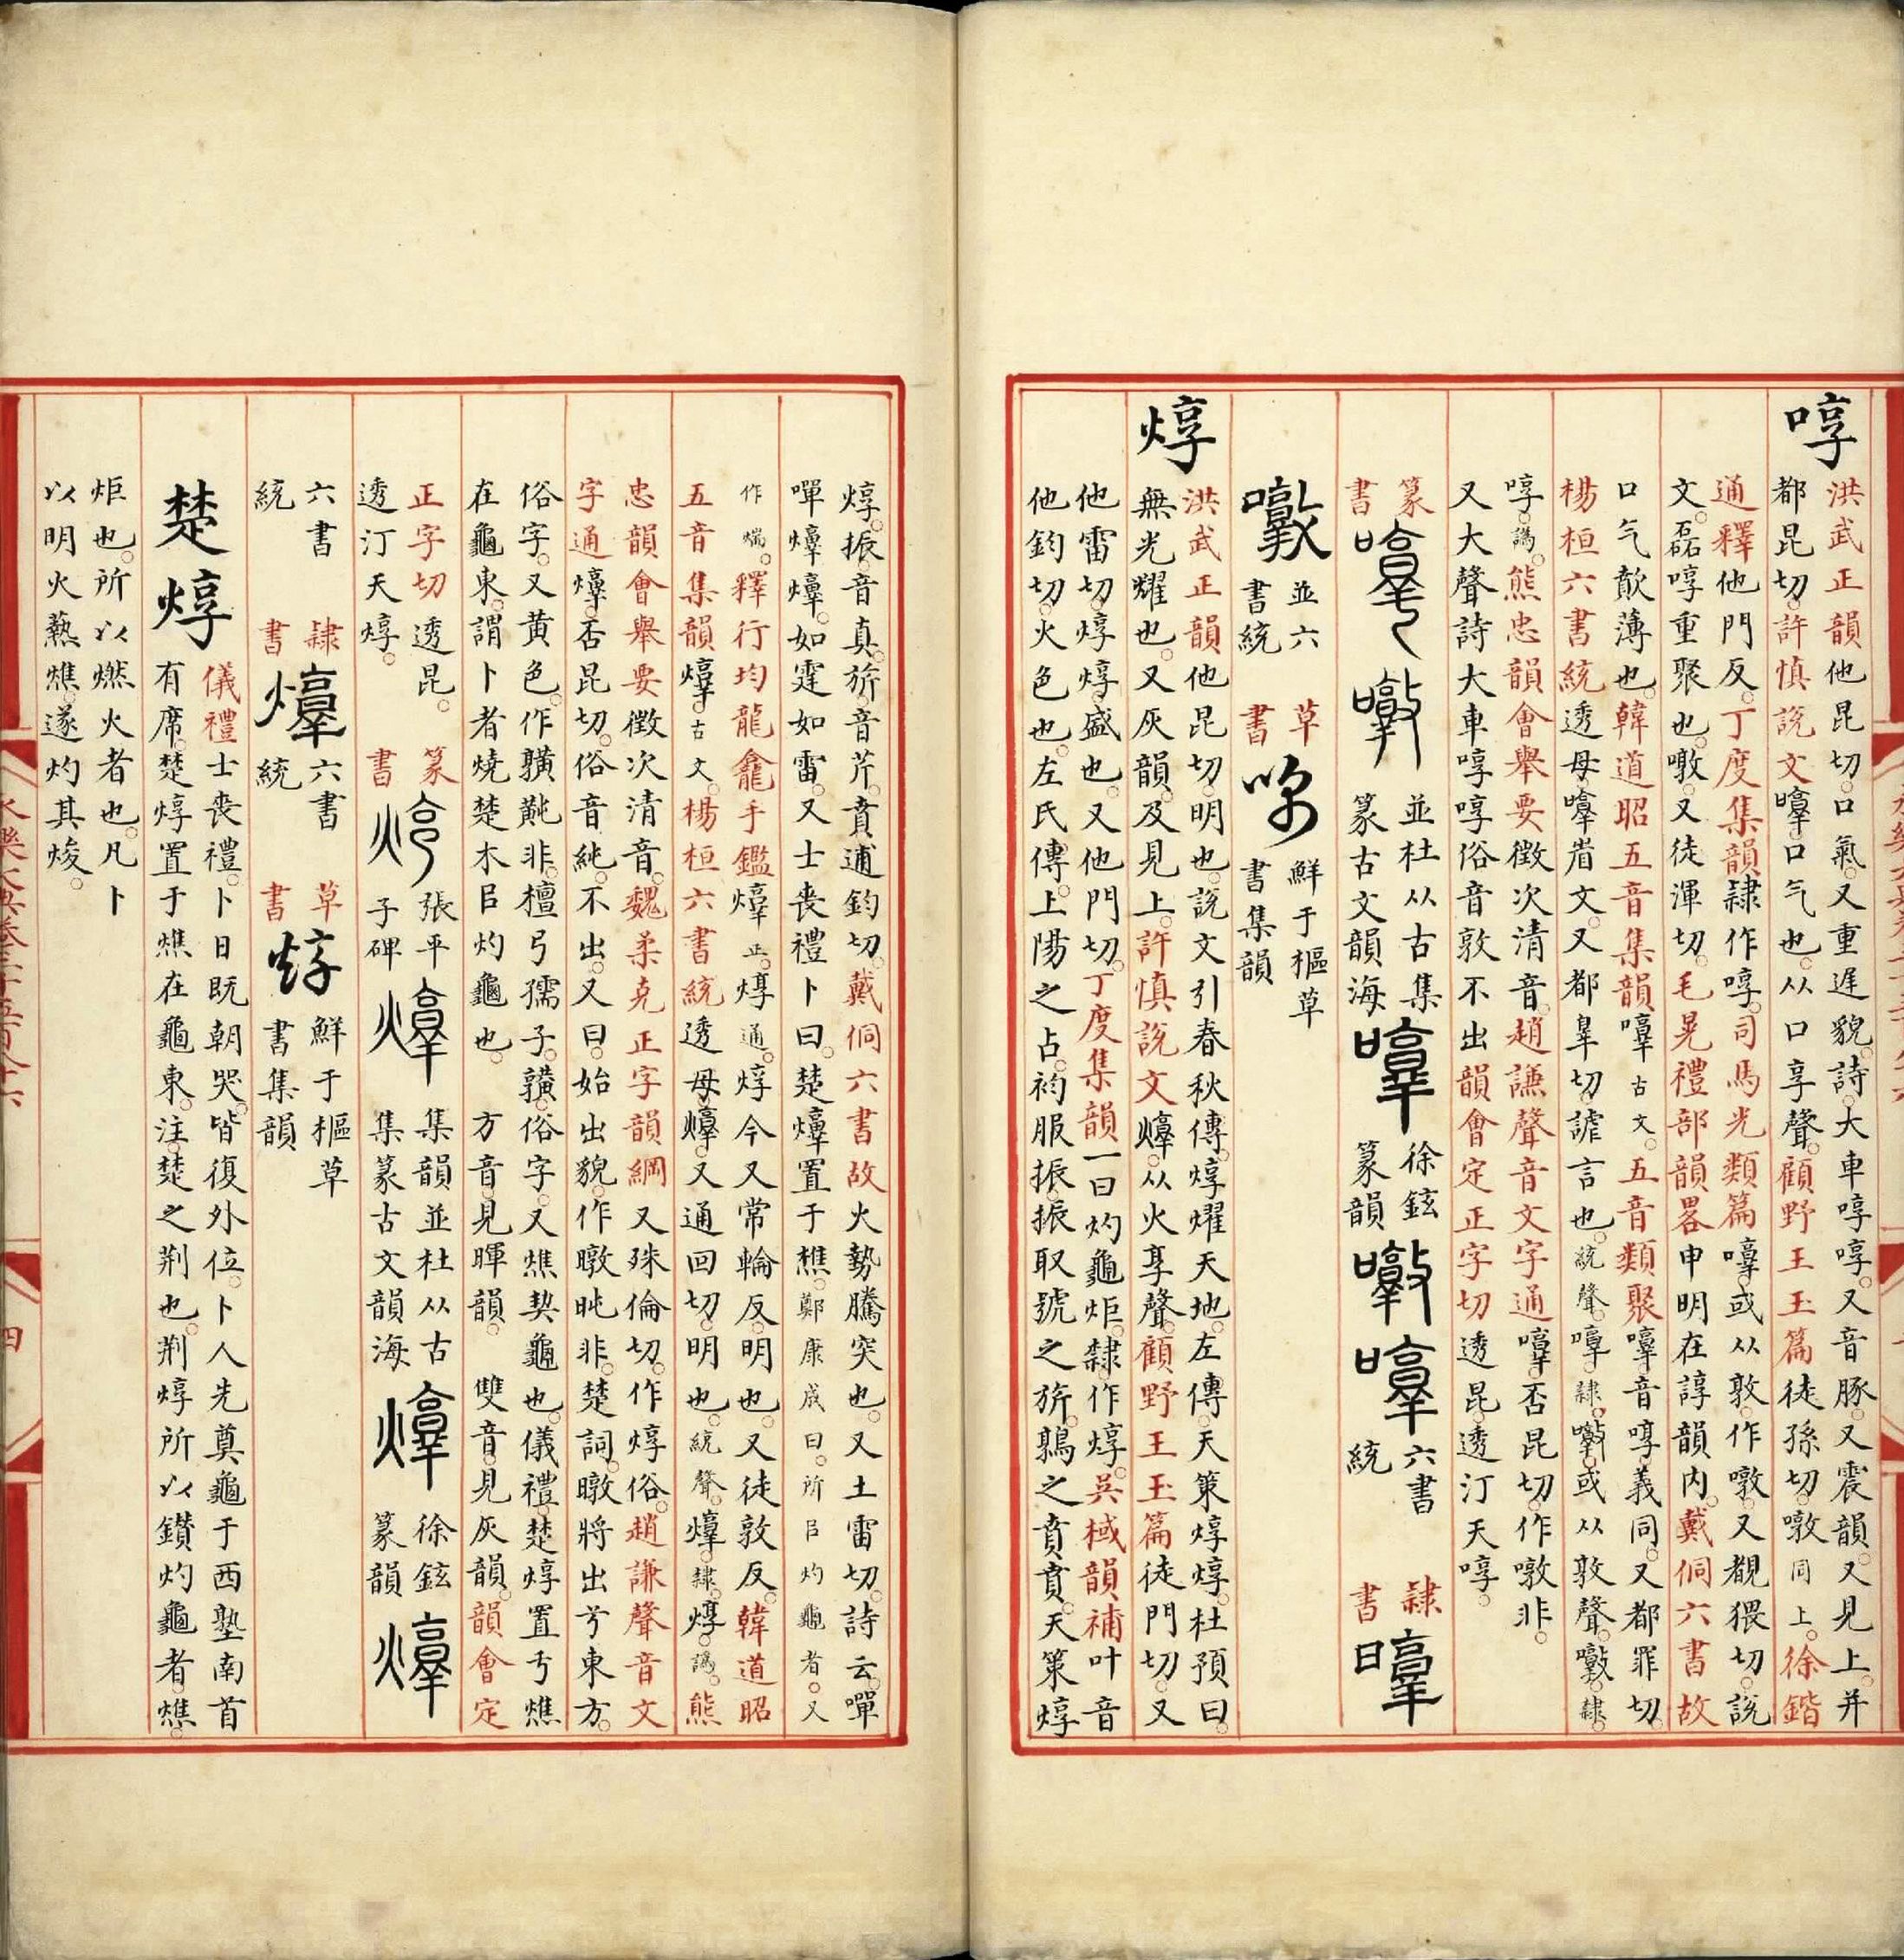 哼
洪武正韻他昆切口氣又重遲貌詩大車啍啍又音豚又震韻又見上并
都昆切許慎說文口气也从口享聲顧野王玉篇徒孫切噋同上徐鍇
通釋他門反丁度集韻隸作啍司馬光類篇或从敦作噋又覩猥切說
文磊啍重聚也噋又徒渾切毛晃禮部韻畧申明在諄韻內戴侗六書故
口气歕薄也韓道昭五音集韻古文五音類聚音啍義同又都罪切
楊桓六書統透母省文又都辠切謔言也統聲啍隸或从敦聲隸
啍譌熊忠韻會舉要徵次清音趙謙聲音文字通否昆切作噋非
又大聲詩大車啍啍俗音敦不出韻會定正字切透昆透汀天啍
篆書 並杜从古集篆古文韻海 徐鉉篆韻 六書統 隸書
並六書統 草書 鮮于樞草書集韻
焞
洪武正韻他昆切明也說文引春秋傳焞燿天地左傳天策焞焞杜預曰
無光耀也又灰韻及見上許慎說文从火享聲顧野王玉篇徒門切又
他雷切焞焞盛也又他門切丁度集韻一曰灼龜炬隸作焞吳棫韻補叶音
他鈞切火色也左氏傳上陽之占袀服振振取號之旂鶉之賁賁天策焞
焞振音真旂音芹賁逋鈞切戴侗六書故火勢騰突也又土雷切詩云嘽
嘽如霆如雷又士喪禮卜曰楚置于樵鄭康成曰所㠯灼龜者又
作煓釋行均龍龕手鑑正焞通焞今又常輪反明也又徒敦反韓道昭
五音集韻古文楊桓六書統透母又通回切明也統聲隸焞譌熊
忠韻會舉要徵次清音魏柔克正字韻綱又殊倫切作焞俗趙謙聲音文
字通否昆切俗音純不出又曰始出貌作暾旽非楚詞暾將出兮東方
俗字又黃色作䵍黗非檀弓孺子䵍俗字又燋契龜也儀禮楚焞置于燋
在龜東謂卜者燒楚木㠯灼龜也 方音見暉韻 雙音見灰韻韻會定
正字切透昆
透汀天焞
篆書 張平子碑 集韻並杜从古集篆古文韻海 徐鉉篆韻
六書統 隸書 六書統 草書 鮮于樞草書集韻
楚焞
儀禮士喪禮卜日既朝哭皆復外位卜人先奠龜于西塾南首
有席楚焞置于燋在龜東注楚之荆也荆焞所以鑽灼龜者燋
炬也所以燃火者也凡卜
以明火爇燋遂灼其焌
四